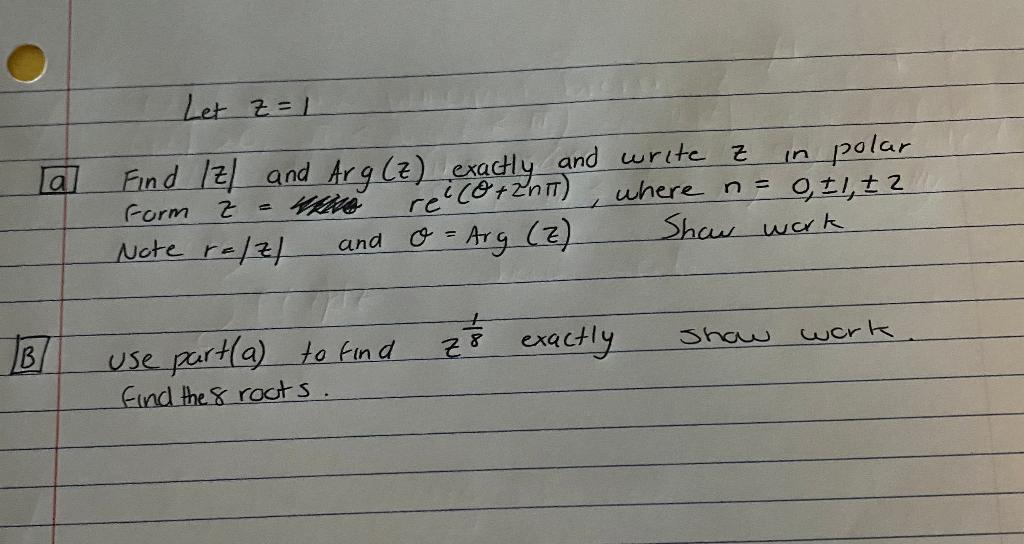 Let z = 1
a Find |z| and Arg(z) exactly and write z in polar
form z = re^{i(θ+2nπ)}, where n = 0, ±1, ±2
Note r = |z| and θ = Arg (z) Show work
B Use part(a) to find z^{1/8} exactly show work.
find the 8 roots.